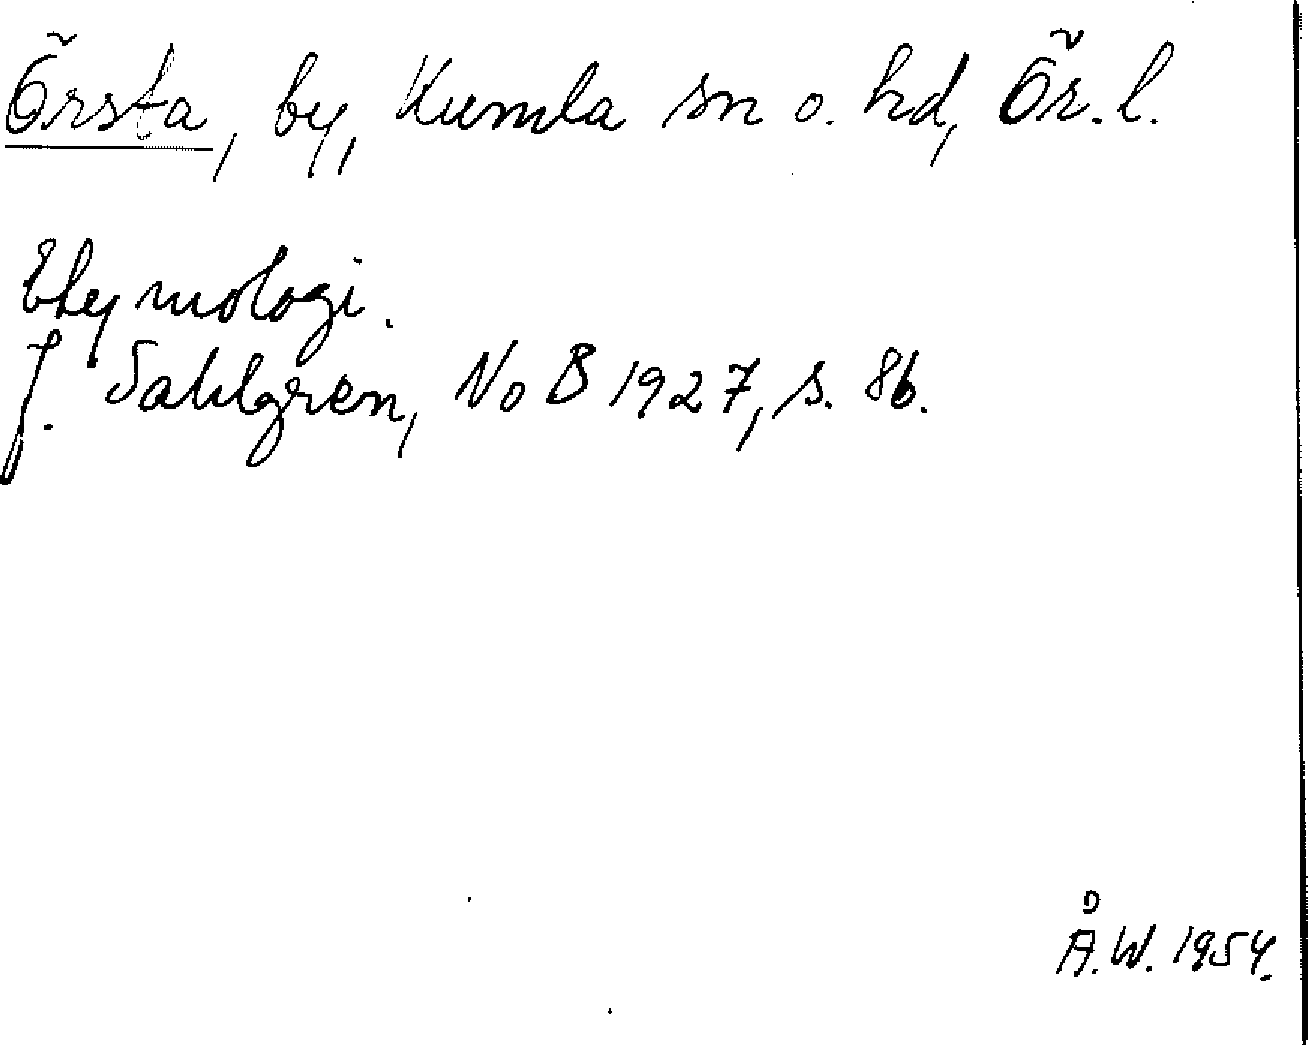 Örsta, by, Kumla sn o. hd, Ör. l.
Etymologi.
J. Sahlgren, NoB 1927, s. 86.
Å.W. 1954.